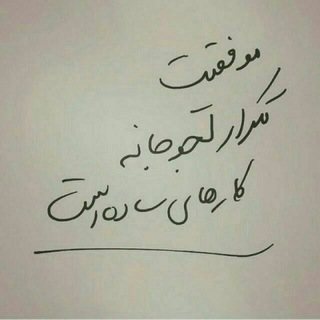 موفقیت
تکرار لجوجانه
کارهای ساده است